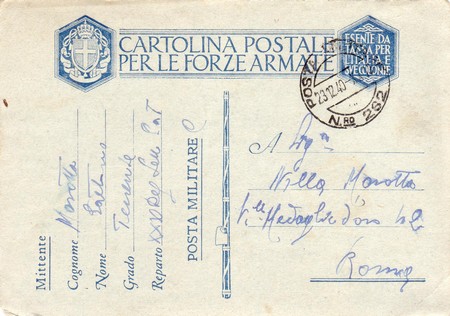 CARTOLINA POSTALE
PER LE FORZE ARMATE
ESENTE DA
TASSA PER
L'ITALIA E
SVE COLONIE
POSTA MILITARE
23.12.40
N.RO 262
Mittente
Cognome Marotta
Nome Gaetano
Grado Tenente
Reparto XXV
POSTA MILITARE
A
Nella Marotta
V.le Medaglie d'oro
Roma